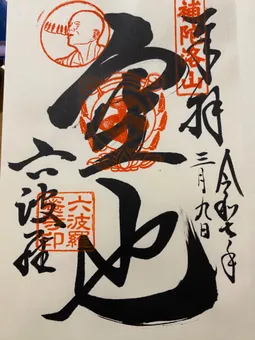 補陀洛山
奉拝
令和七年
三月九日
空也
六波羅
六波羅
蜜寺印